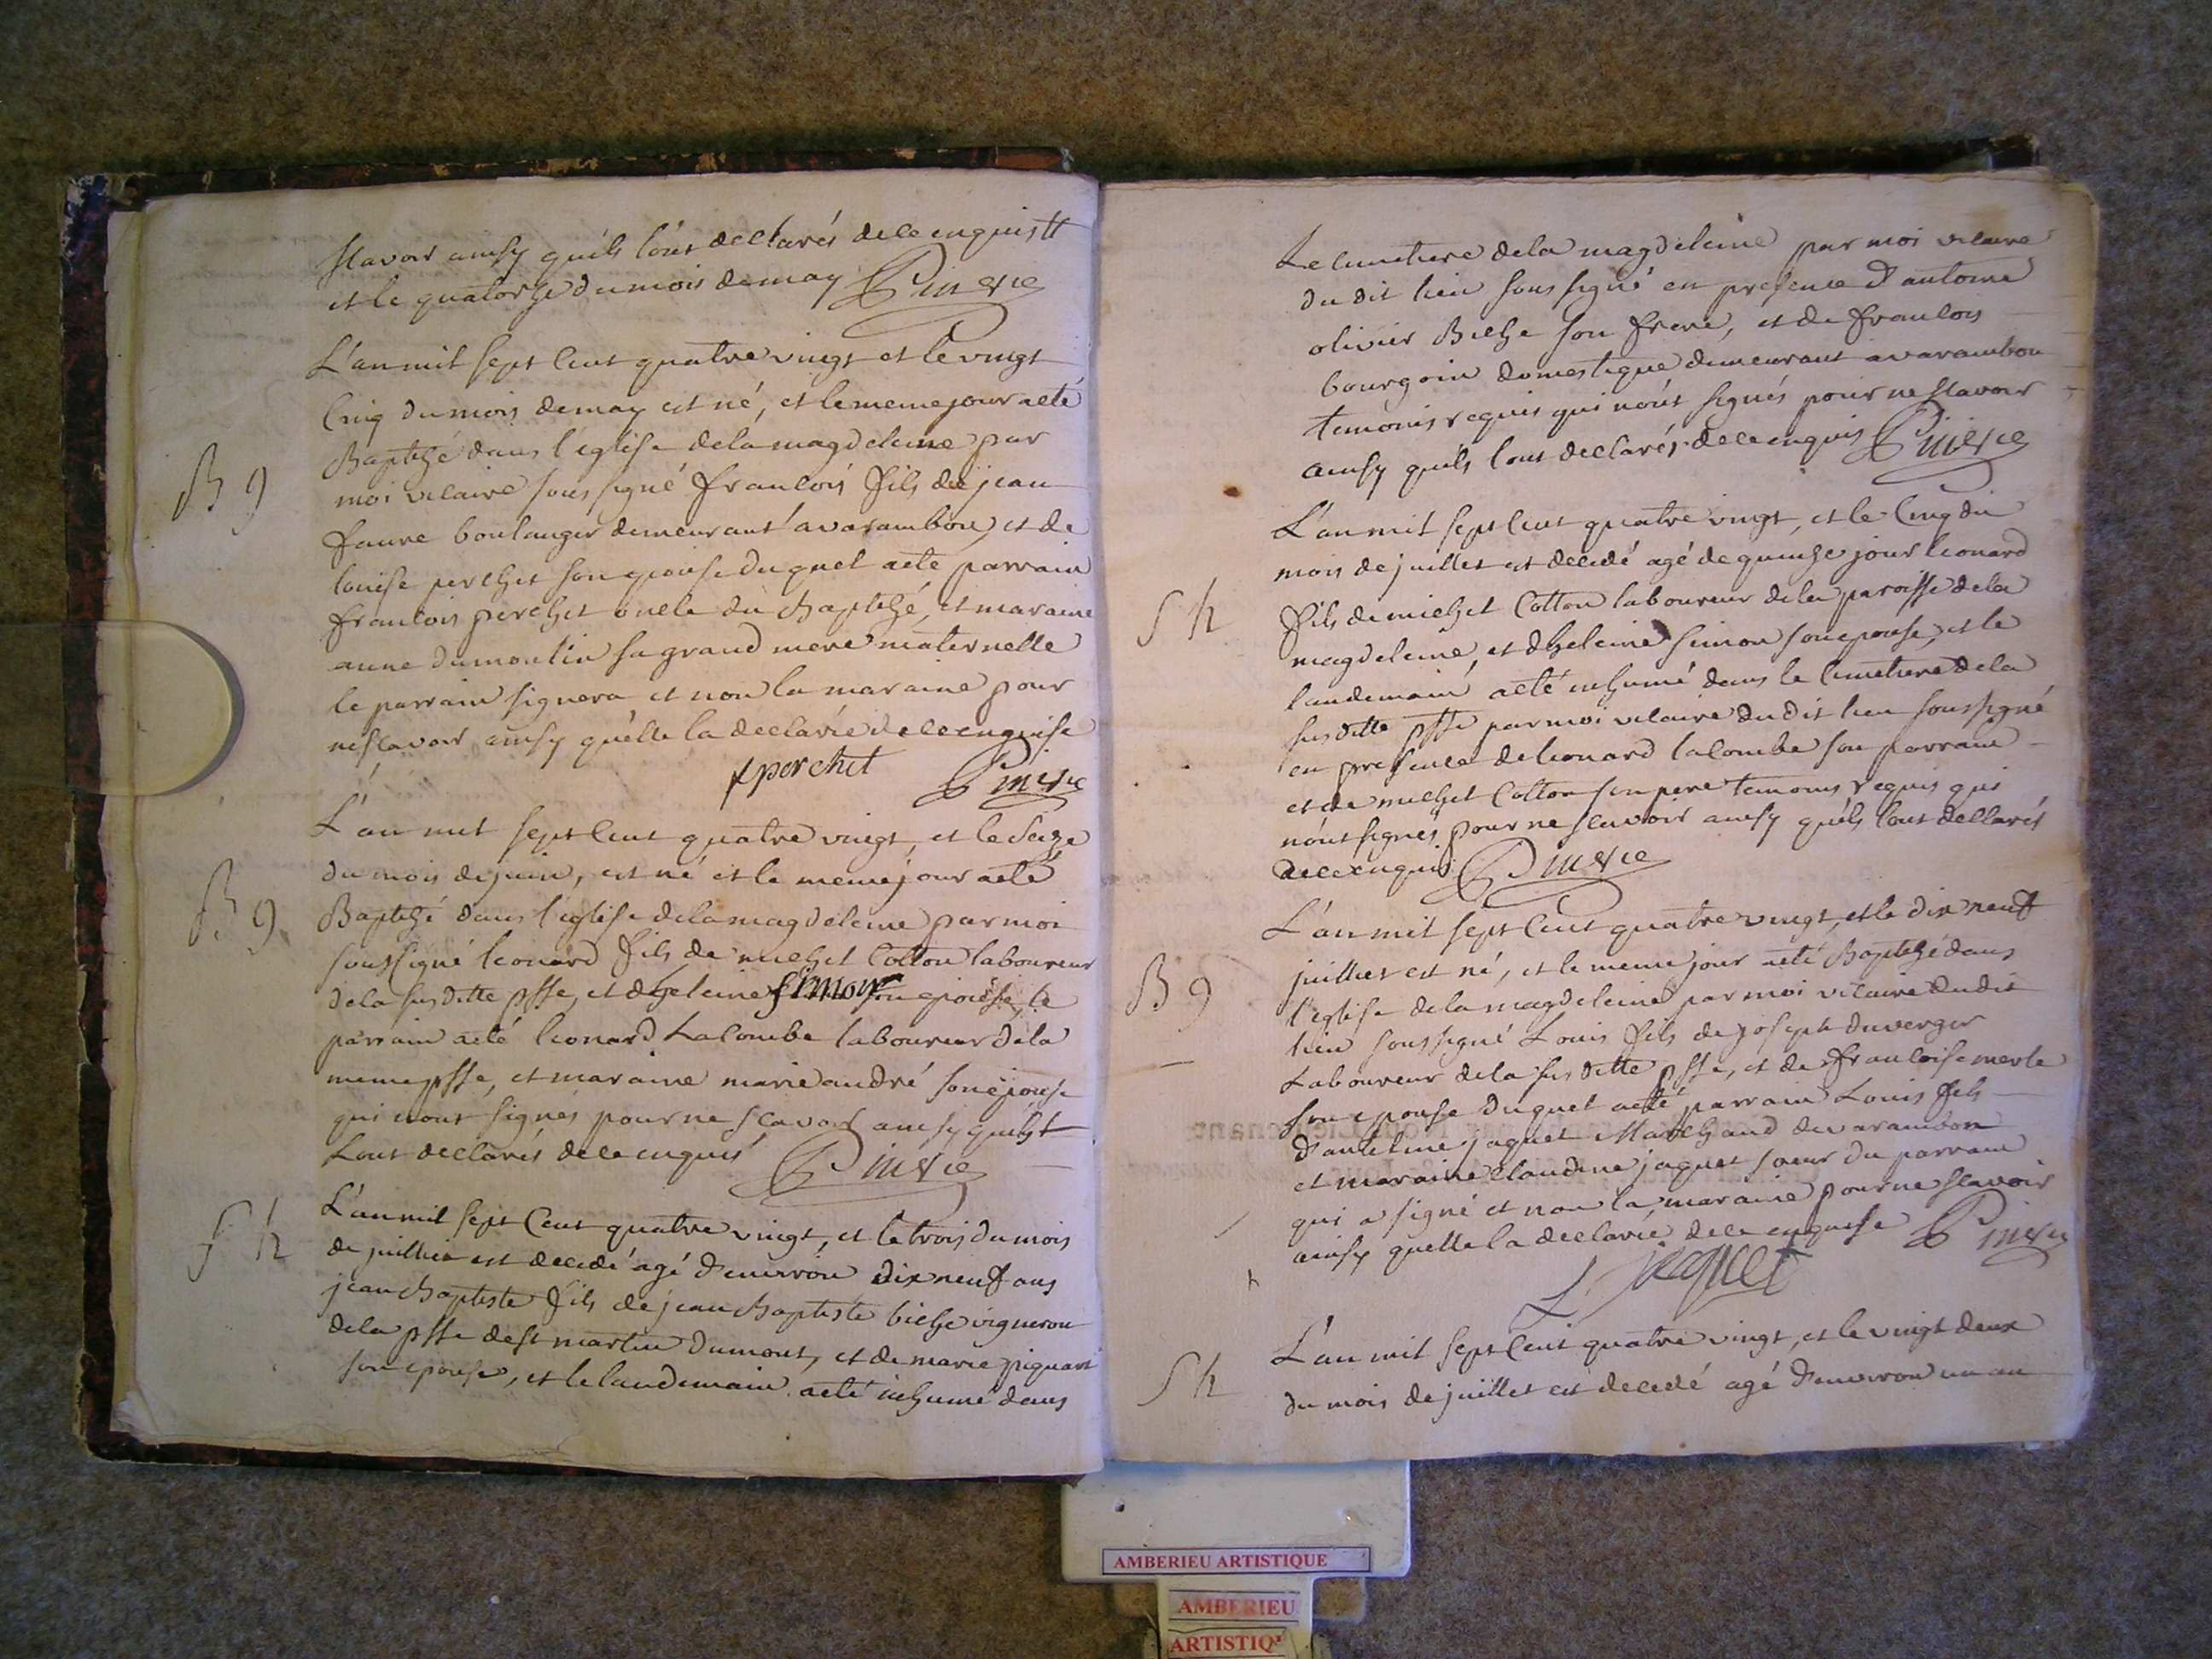 sçavoir ainsy quils l'ont declarés de ce enquis
et le quatorze du mois de may Pinerie
L'an mil sept cent quatre vingt et le vingt
cinq du mois de may est né, et le meme jour a eté
B g
Baptizé dans l'eglise de la magdeleine par
moi vicaire soussigné francois fils de jean
faure boulanger demeurant a varambon, et de
louise perchet son epouse duquel a ete parrain
francois perchet oncle du Baptizé, et maraine
anne dumoulin sa grand mere maternelle
le parrain signera et non la maraine pour
ne sçavoir ainsy quelle la declarée de ce enquise
f perchet Pinerie
L'an mil sept cent quatre vingt, et le seize
du mois de juin, est né et le meme jour a eté
B g
Baptizé dans l'eglise de la magdeleine par moi
soussigné leonard fils de michel Cotton laboureur
de la susditte psse, et d'heleine simon son epouse, le
parrain a eté leonard Lacombe laboureur de la
meme psse, et maraine marie andré son epouse
qui n'ont signés pour ne sçavoir ainsy quils
L'ont declarés de ce enquis Pinerie
S h
L'an mil sept Cent quatre vingt, et le trois du mois
de juillet est decedé agé d'environ dix neuf ans
jean Baptiste fils de jean Baptiste biche vigneron
de la psse de st martin du mont, et de marie piquant
son epouse, et le landemain a eté inhumé dans
Le cimetiere de la magdeleine par moi vicaire
du dit lieu soussigné en presence d'antoine
olivier Biche son frere, et de francois
bourgoin domestique demeurant a varambon
temoins requis qui n'ont signés pour ne sçavoir
ainsy quils l'ont declarés de ce enquis Pinerie
L'an mil sept cent quatre vingt, et le cinq du
mois de juillet est decedé agé de quinze jour leonard
S h
fils de michel Cotton laboureur de la paroisse de la
magdeleine, et d'heleine simon son epouse, et le
landemain a eté inhumé dans le cimetiere de la
susditte psse par moi vicaire du dit lieu soussigné
en presence de leonard lacombe son parrain
et de michel Cotton son pere temoins requis qui
n'ont signés pour ne scavoir ainsy quils l'ont declarés
de ce enquis Pinerie
L'an mil sept cent quatre vingt, et le dix neuf
juillet est né, et le meme jour a eté Baptizé dans
B g
l'eglise de la magdeleine par moi vicaire du dit
lieu soussigné Louis fils de joseph duverger
Laboureur de la susditte psse, et de francoise merle
son epouse duquel a eté parrain Louis fils
d'antelme jaquet Marchand de varambon
et maraine claudine jaquet soeur du parrain
qui a signé et non la maraine pour ne sçavoir
ainsy quelle la declarée de ce enquise Pinerie
L jaquet
S h
L'an mil sept cent quatre vingt, et le vingt deux
du mois de juillet est decedé agé d'environ un an
AMBERIEU ARTISTIQUE
AMBERIEU
ARTISTIQ